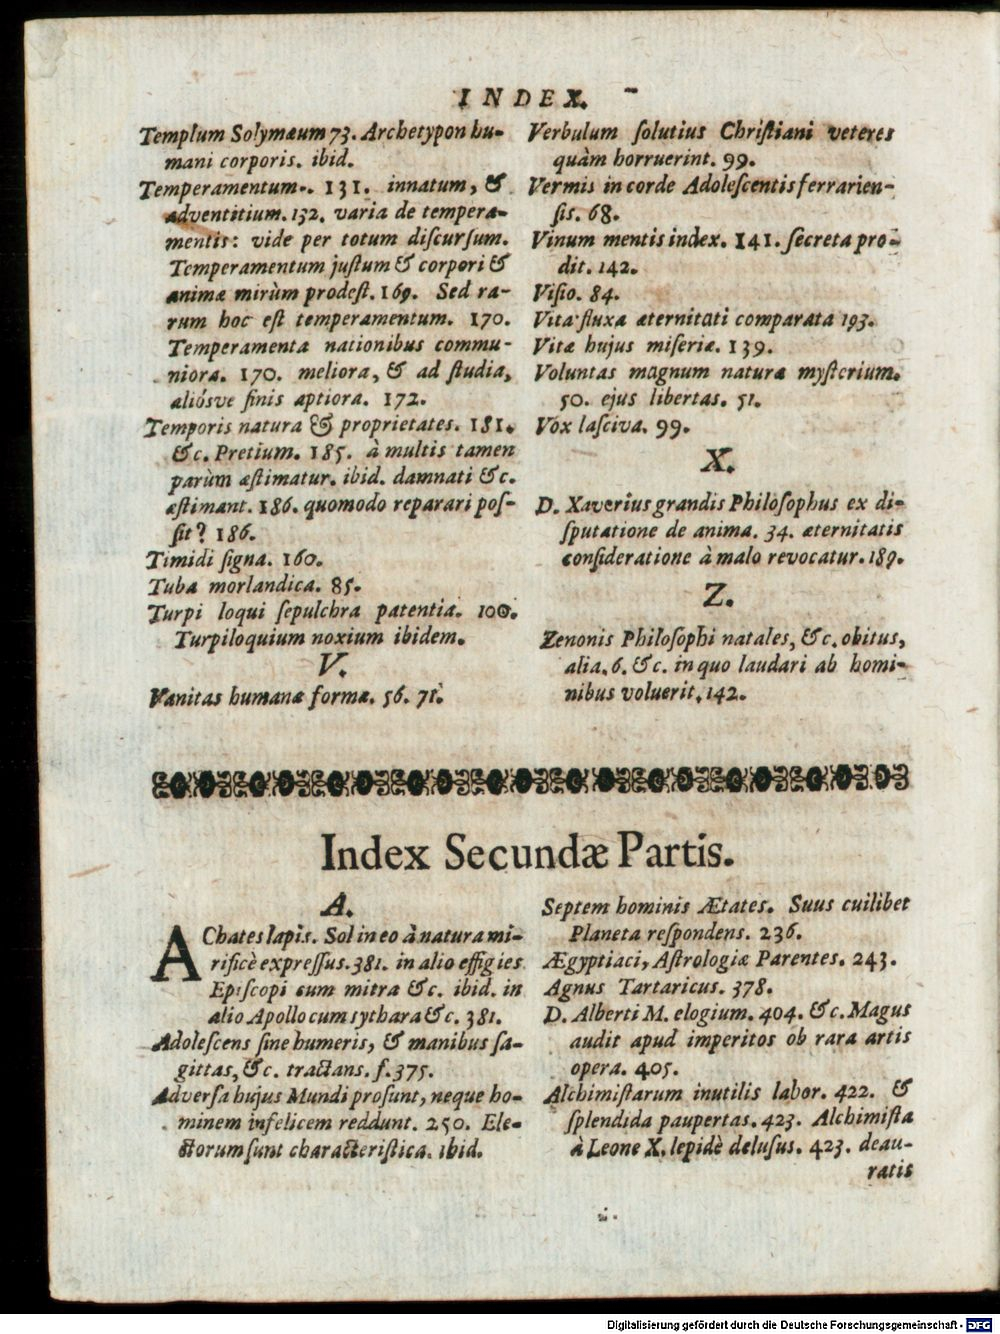 INDEX.
Templum Solymæum 73. Archetypon hu-
mani corporis. ibid.
Temperamentum. 131. innatum, &
adventitium. 132. varia de tempera-
mentis: vide per totum discursum.
Temperamentum justum & corpori &
animæ mirùm prodest. 169. Sed ra-
rum hoc est temperamentum. 170.
Temperamenta nationibus commu-
niora. 170. meliora, & ad studia,
aliósve finis aptiora. 172.
Temporis natura & proprietates. 181.
&c. Pretium. 185. à multis tamen
parùm æstimatur. ibid. damnati &c.
æstimant. 186. quomodo reparari pos-
sit? 186.
Timidi signa. 160.
Tuba morlandica. 85.
Turpi loqui sepulchra patentia. 100.
Turpiloquium noxium ibidem.
V.
Vanitas humanæ formæ. 56. 71.
Verbulum solutius Christiani veteres
quàm horruerint. 99.
Vermis in corde Adolescentis ferrarien-
sis. 68.
Vinum mentis index. 141. secreta pro-
dit. 142.
Visio. 84.
Vita fluxa æternitati comparata 193.
Vitæ hujus miseriæ. 139.
Voluntas magnum naturæ mysterium.
50. ejus libertas. 51.
Vox lasciva. 99.
X.
D. Xaverius grandis Philosophus ex di-
sputatione de anima. 34. æternitatis
consideratione à malo revocatur. 189.
Z.
Zenonis Philosophi natales, &c. obitus,
alia. 6. &c. in quo laudari ab homi-
nibus voluerit. 142.
Index Secundæ Partis.
A.
AChates lapis. Sol in eo à natura mi-
rificè expressus. 381. in alio effigies
Episcopi cum mitra &c. ibid. in
alio Apollo cum sythara &c. 381.
Adolescens sine humeris, & manibus sa-
gittas, &c. tractans. f. 375.
Adversa hujus Mundi prosunt, neque ho-
minem infelicem reddunt. 250. Ele-
ctorum sunt characteristica. ibid.
Septem hominis Ætates. Suus cuilibet
Planeta respondens. 236.
Ægyptiaci, Astrologiæ Parentes. 243.
Agnus Tartaricus. 378.
D. Alberti M. elogium. 404. &c. Magus
audit apud imperitos ob rara artis
opera. 405.
Alchimistarum inutilis labor. 422. &
splendida paupertas. 423. Alchimista
à Leone X. lepidè delusus. 423. deau-
ratis
Digitalisierung gefördert durch die Deutsche Forschungsgemeinschaft - DFG